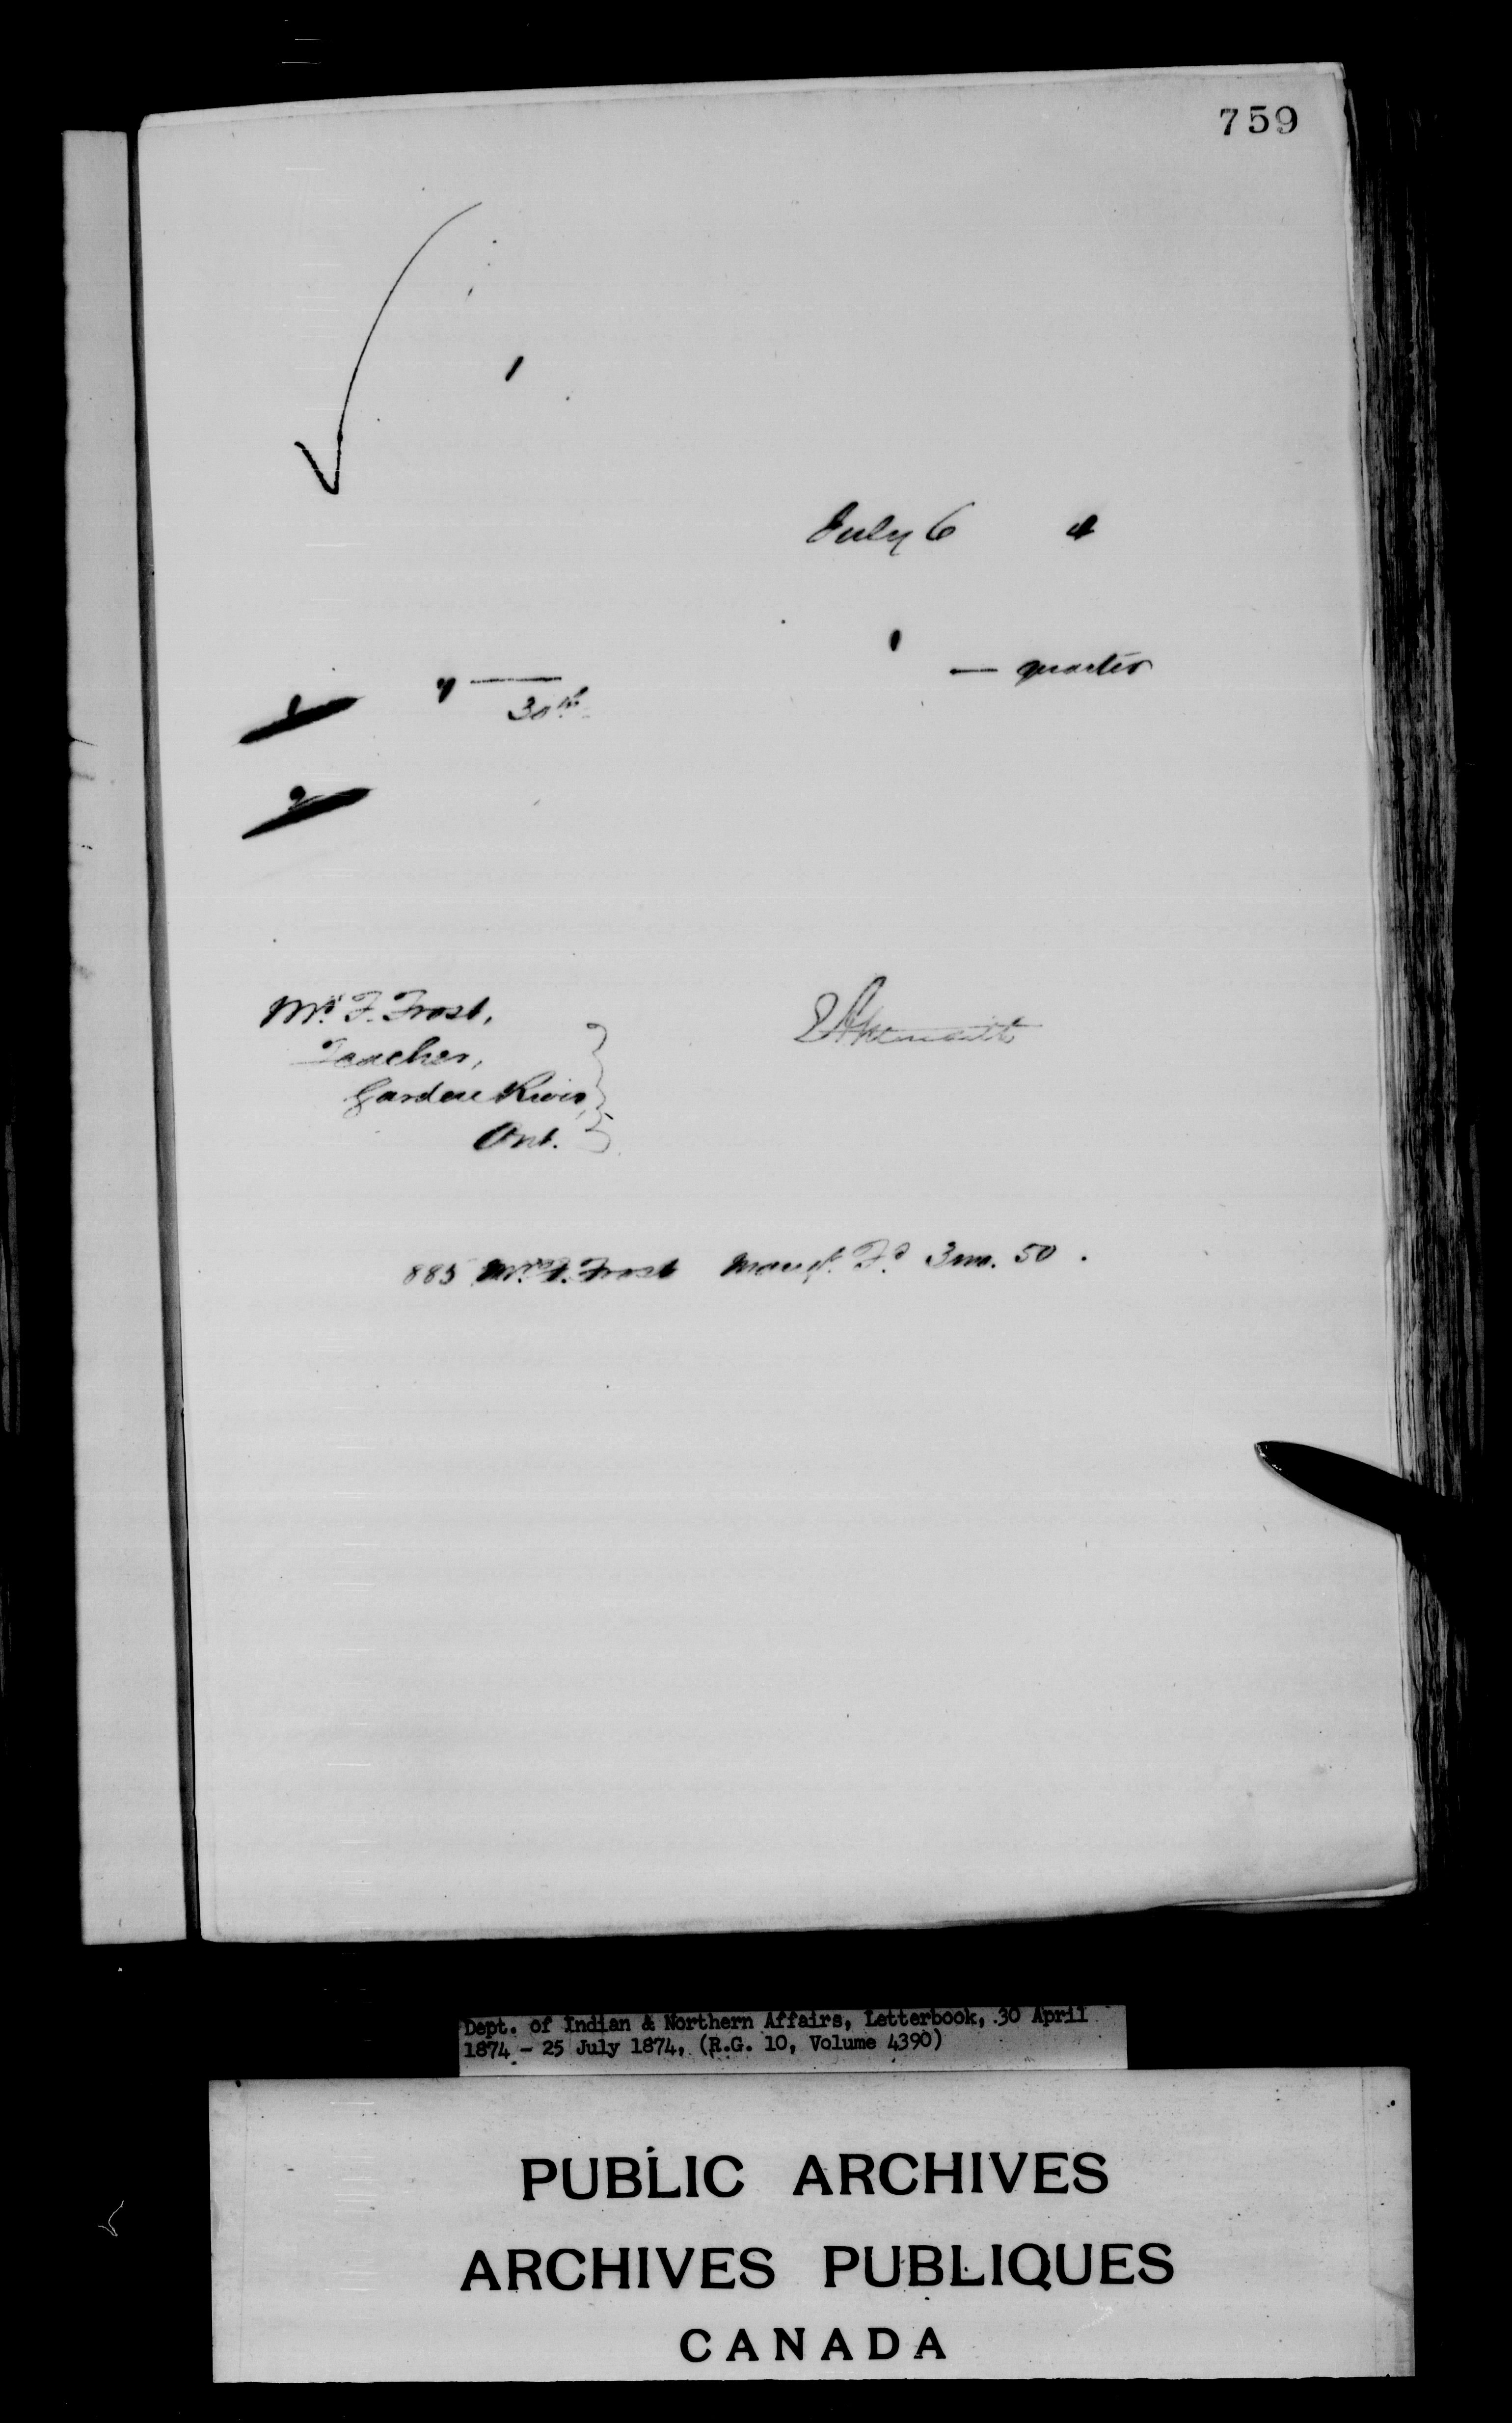 759
July 6 4
1 y — — quarter
30th
2
Mr. F. Frost,
Teacher,
Garden River,
Ont.
885 Mr. F. Frost Mangt. Fd. 3 m. 50.
Dept. of Indian & Northern Affairs, Letterbook, 30 April
1874 - 25 July 1874, (R.G. 10, Volume 4390)
PUBLIC ARCHIVES
ARCHIVES PUBLIQUES
CANADA